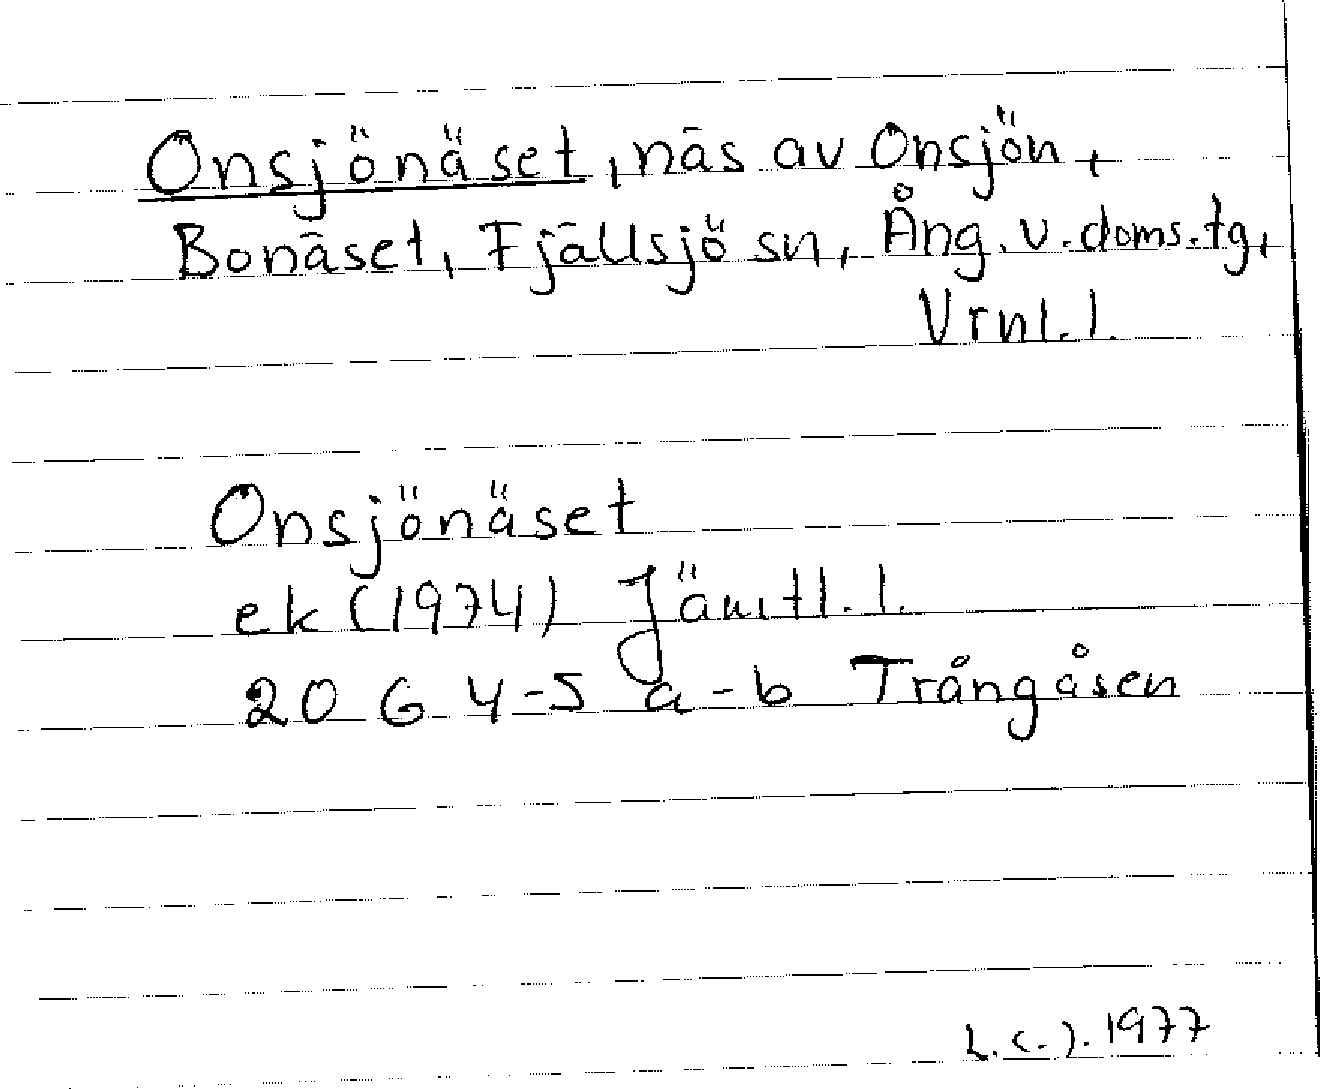 Onsjönäset, näs av Onsjön,
Bonäset, Fjällsjö sn, Ång. v. doms. tg,
Vrnl. l.
Onsjönäset
ek (1974) Jämtl. l.
20 G 4-5 a-b Trångåsen
1977